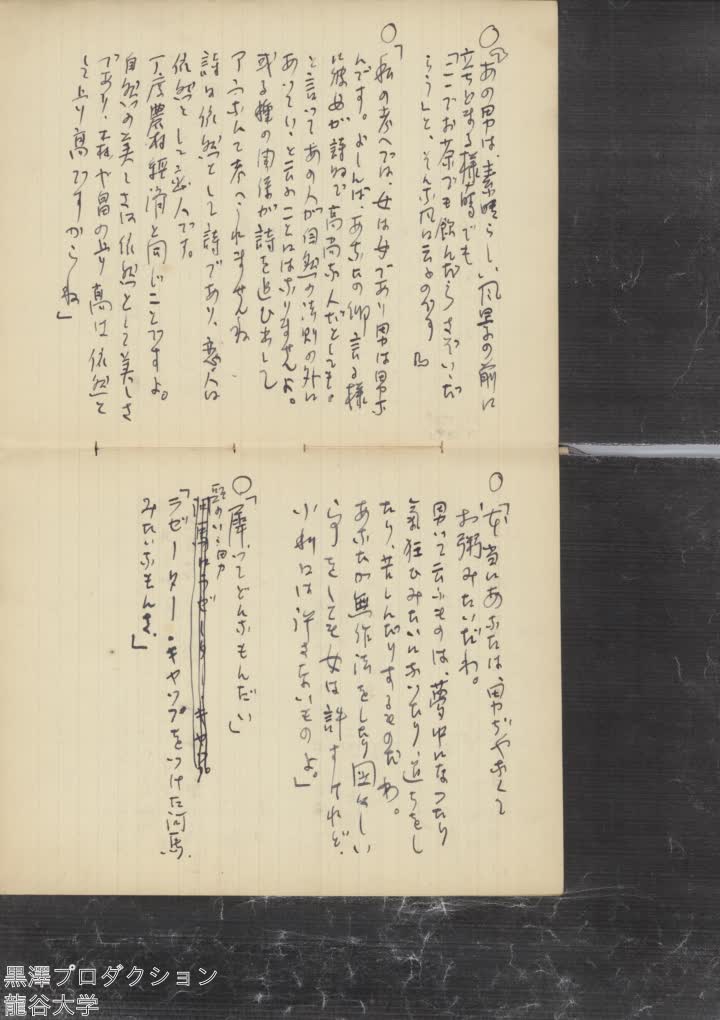 ○「あの男は、素晴らしい風景の前に
立ちとする様な時でも
「ここでお茶でも飲んだらさぞいゝだ
らう」と、そんな風に云ふのです
○「私の考へでは、女は女であり男は男な
んです。よしんば、あなたの御言る様
に彼女が詩的で高尚な人だとしても。
と言ってあの人が自然の法則の外に
あっていゝと云ふことにはなりませんよ。
或る種の関係が詩を追ひ出して
アなんて考へられませんね
詩は依然として詩であり、恋人は
依然として恋人です。
丁度農村経済と同じことですよ。
自然の美しさは依然として美しさ
であり、森や畠の上り高は依然と
して上り高ですからね」
○「本当にあなたは、男ぢやなくて
お粥みたいだわ。
男って云ふものは、夢中になつたり
氣狂ひみたいになつたり、過ちをし
たり、苦しんだりするものだわ。
あなたが無作法をしたり図々しい
をしても女は許すけれど、
は許さないものよ。」
○「犀ってどんなもんだい」
頭のいゝ男
「ラヂーター・キャップをつけた河馬
みたいなもんさ」
黒澤プロダクション
龍谷大学